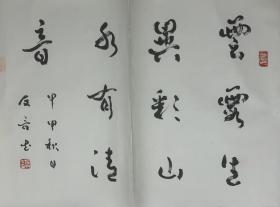 雲霞生
異彩山
水有清
音
甲申秋日